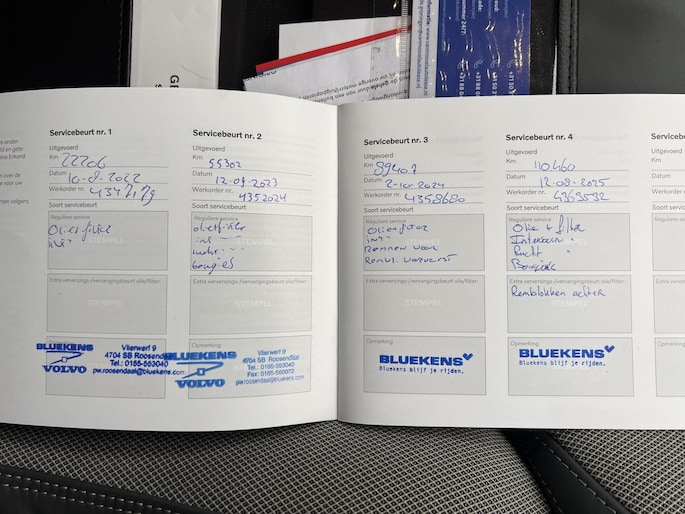 Servicebeurt nr. 1
Uitgevoerd
Km 22206
Datum 10-8-2022
Werkorder nr.
Soort servicebeurt
Reguliere service
Olie+filter
int
STEMPEL
Extra verversings-/vervangingsbeurt olie/filter:
STEMPEL
BLUEKENS
VOLVO
Vlierwerf 9
4704 SB Roosendaal
Tel.: 0165-553040
pw.roosendaal@bluekens.com
Servicebeurt nr. 2
Uitgevoerd
Km 55302
Datum 12-09-2023
Werkorder nr. 4352024
Soort servicebeurt
Reguliere service
olie+filter
int
bougies
Extra verversings-/vervangingsbeurt olie/filter:
STEMPEL
Opmerking:
BLUEKENS
VOLVO
Vlierwerf 9
4704 SB Roosendaal
Tel.: 0165-553040
Fax: 0165-560972
pw.roosendaal@bluekens.com
Servicebeurt nr. 3
Uitgevoerd
Km 89407
Datum 2-10-2024
Werkorder nr. 4358680
Soort servicebeurt
Reguliere service
Olie+filter
int
Remmen voor
Remvl. ververst
Extra verversings-/vervangingsbeurt olie/filter:
STEMPEL
Opmerking:
BLUEKENS
Bluekens blijf je rijden.
Servicebeurt nr. 4
Uitgevoerd
Km 110460
Datum 12-08-2025
Werkorder nr. 4363532
Soort servicebeurt
Reguliere service
Olie + filter
Interieur "
Lucht "
Bougies
Extra verversings-/vervangingsbeurt olie/filter:
Remblokken achter
STEMPEL
Opmerking:
BLUEKENS
Bluekens blijf je rijden.